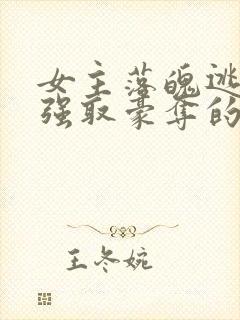 女主落魄逃
强取豪夺的
王冬婉